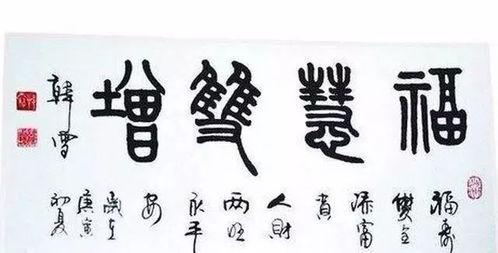 福慧雙增
福寿
雙全
添富
貴
人財
两旺
永平
安
歲在
庚寅
初夏
韓雪